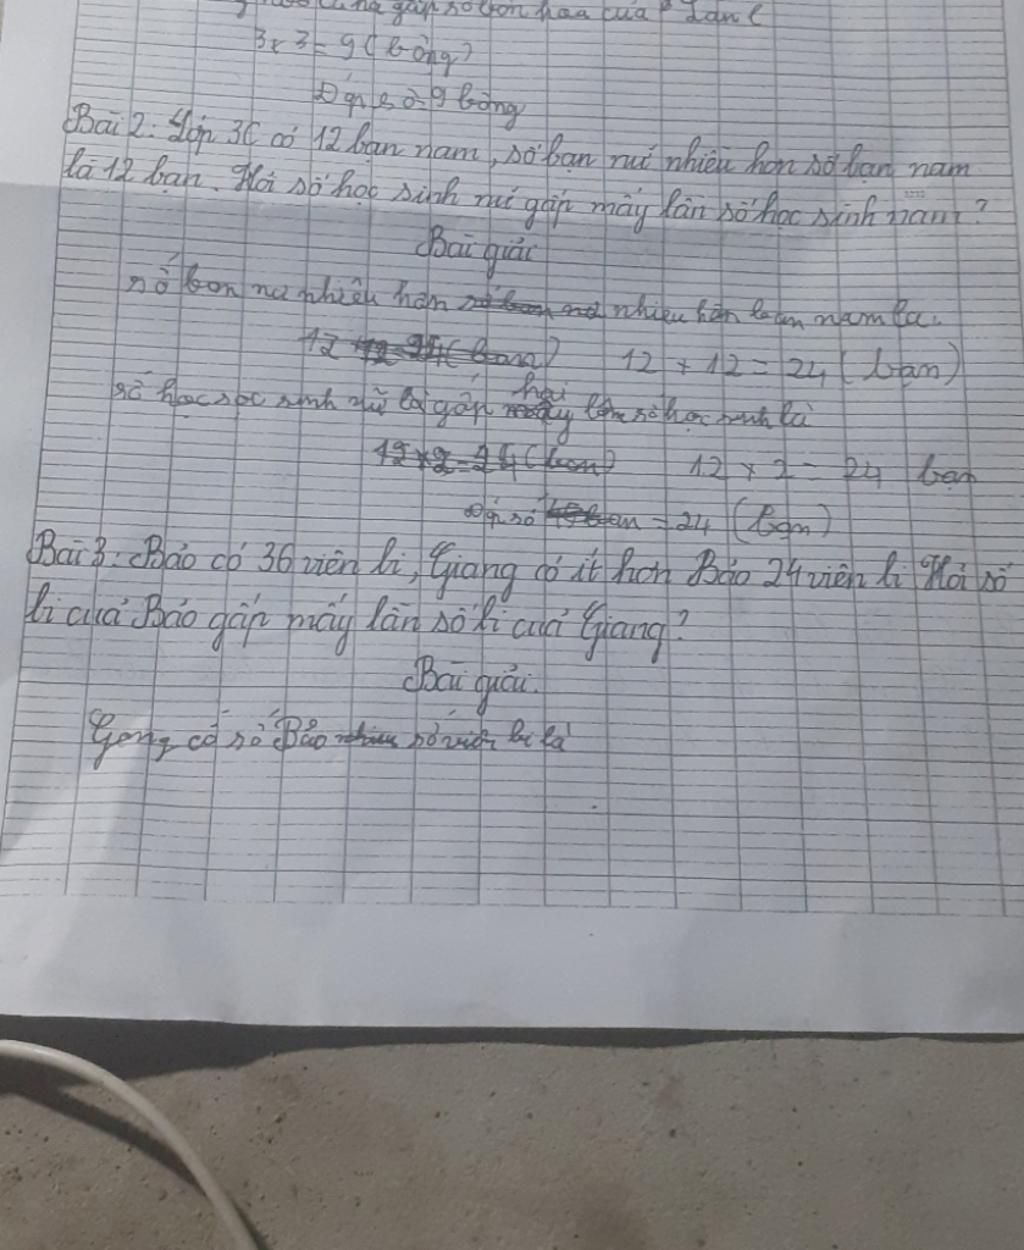 gấp số bông hoa của Lan (
3 x 3 = 9 (bông)
Đáp số 9 bông
Bài 2: Lớp 3C có 12 bạn nam, số bạn nữ nhiều hơn số bạn nam
là 12 bạn. Hỏi số học sinh nữ gấp mấy lần số học sinh nam?
Bài giải
số bạn nữ nhiều hơn nhiều hơn bạn nam là:
12 + 12 = 24 (bạn)
số học sinh nữ gấp hai lần số học sinh là
12 x 2 = 24 bạn
Đáp số = 24 (bạn)
Bài 3: Bảo có 36 viên bi, Giang có ít hơn Bảo 24 viên bi Hỏi số
bi của Bảo gấp mấy lần số bi của Giang?
Bài giải.
có số Bảo số viên bi là